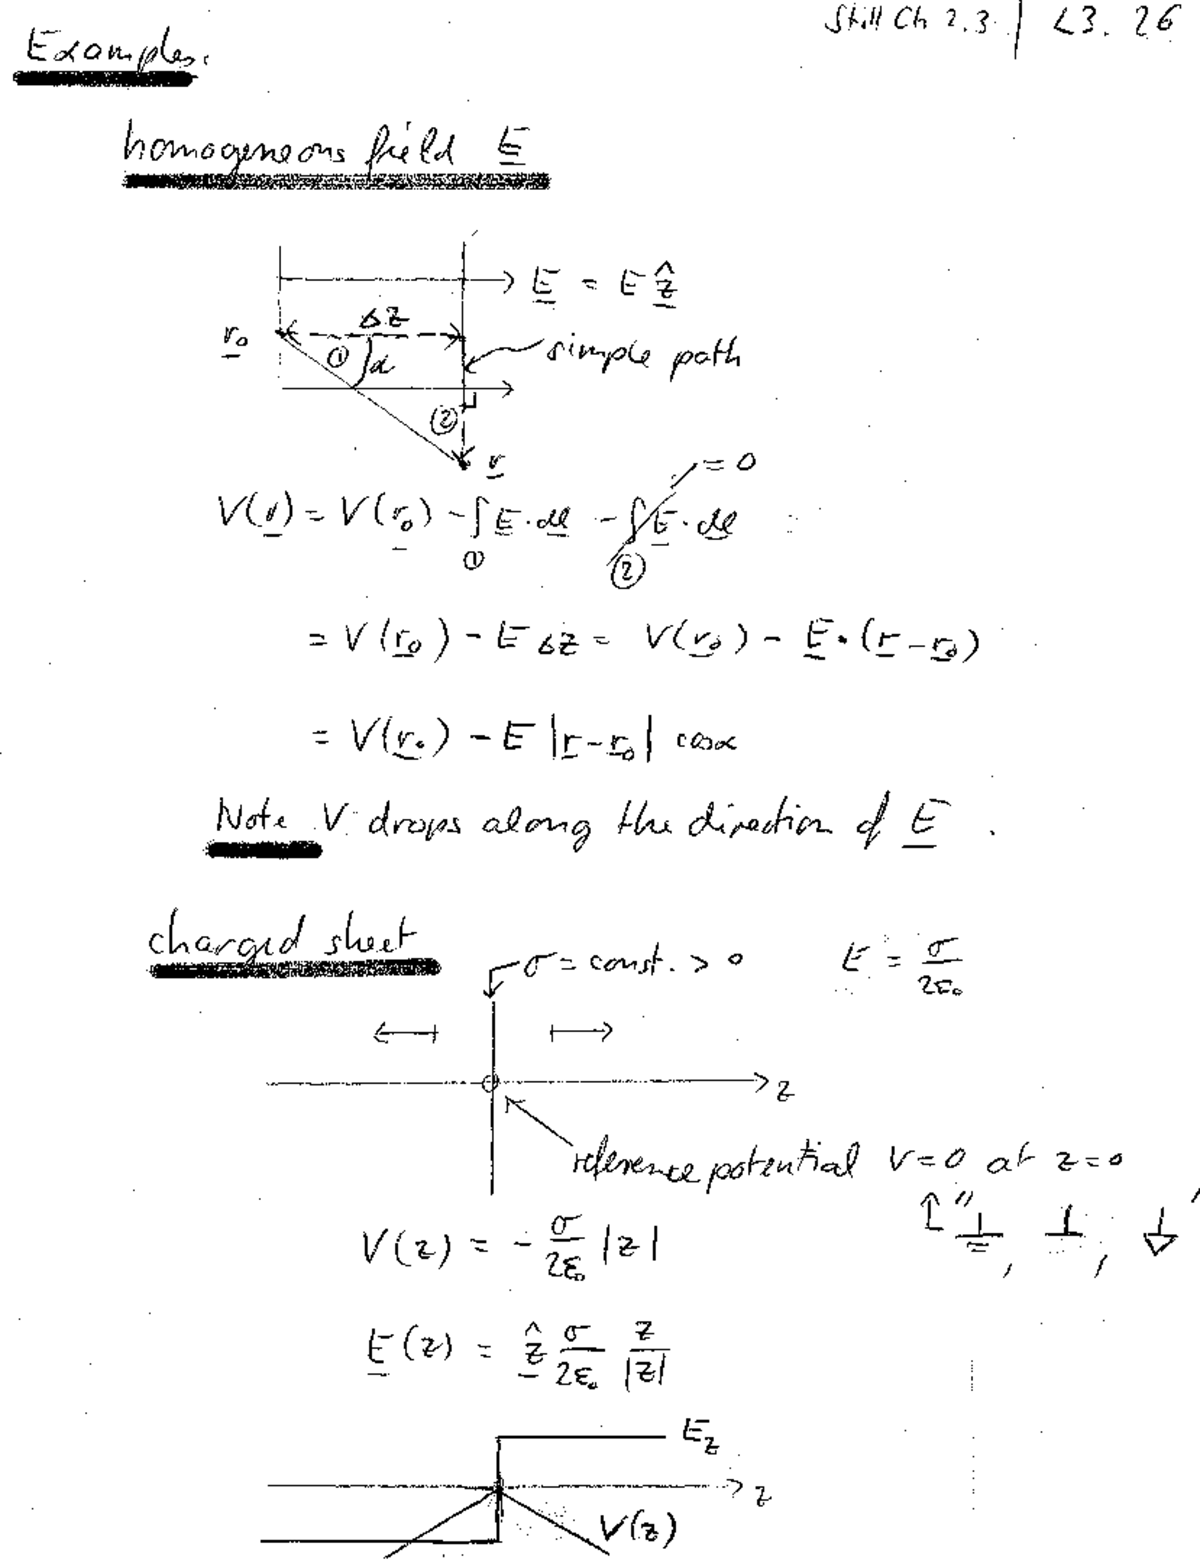 Still Ch 2.3 | L3. 26
Examples:
homogeneous field E
E = E ẑ
Δz
r₀
① α
simple path
②
r
= 0
V(r) = V(r₀) - ∫ E · dl - ∫ E · dl
① ②
= V(r₀) - E Δz = V(r₀) - E · (r - r₀)
= V(r₀) - E |r - r₀| cosα
Note V drops along the direction of E .
charged sheet
σ = const. > 0 E = σ/2ε₀
z
reference potential V=0 at z=0
" , , "
V(z) = - σ/2ε₀ |z|
E(z) = ẑ σ/2ε₀ z/|z|
E_z
z
V(z)